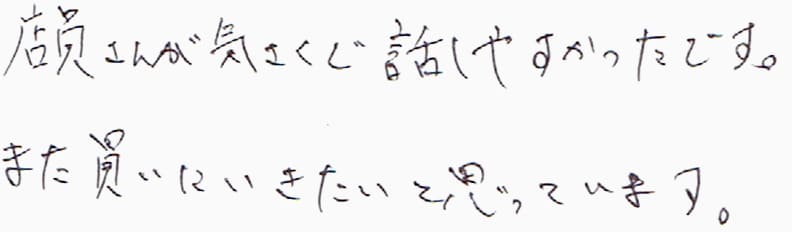 店員さんが気さくで話しやすかったです。
また買いにいきたいと思っています。